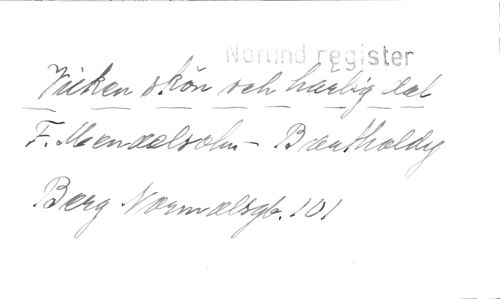 Norlind register
Vilken skön och härlig dal
F. Mendelsohn - Bartholdy
Berg Normalsgb. 101